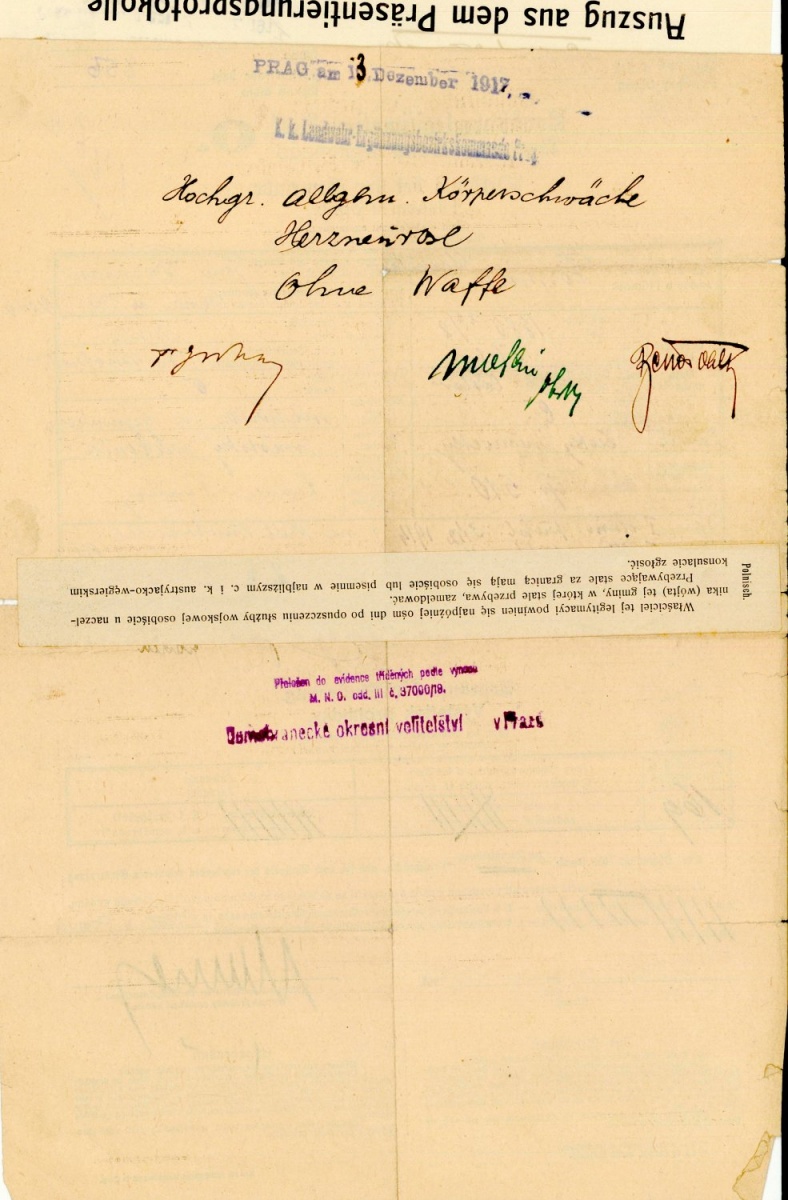 Auszug aus dem Präsentierungsprotokolle
PRAG am 13 Dezember 1917.
K. k. Landwehr-Ergänzungsbezirkskommando Prag
Hochgr. allgem. Körperschwäche
Herzneurose
Ohne Waffe
Polnisch.
Właściciel tej legitymacyi powinien się najpóźniej ośm dni po opuszczeniu służby wojskowej osobiście u naczel-
nika (wójta) tej gminy, w której stale przebywa, zameldować.
Przebywające stale za granicą mają się osobiście lub pisemnie w najbliższym c. i k. austryjacko-węgierskim
konsulacie zgłosić.
Přeložen do evidence tříděných podle výnosu
M. N. O. odd. III č. 37000/19.
Domobranecké okresní velitelství v Praze